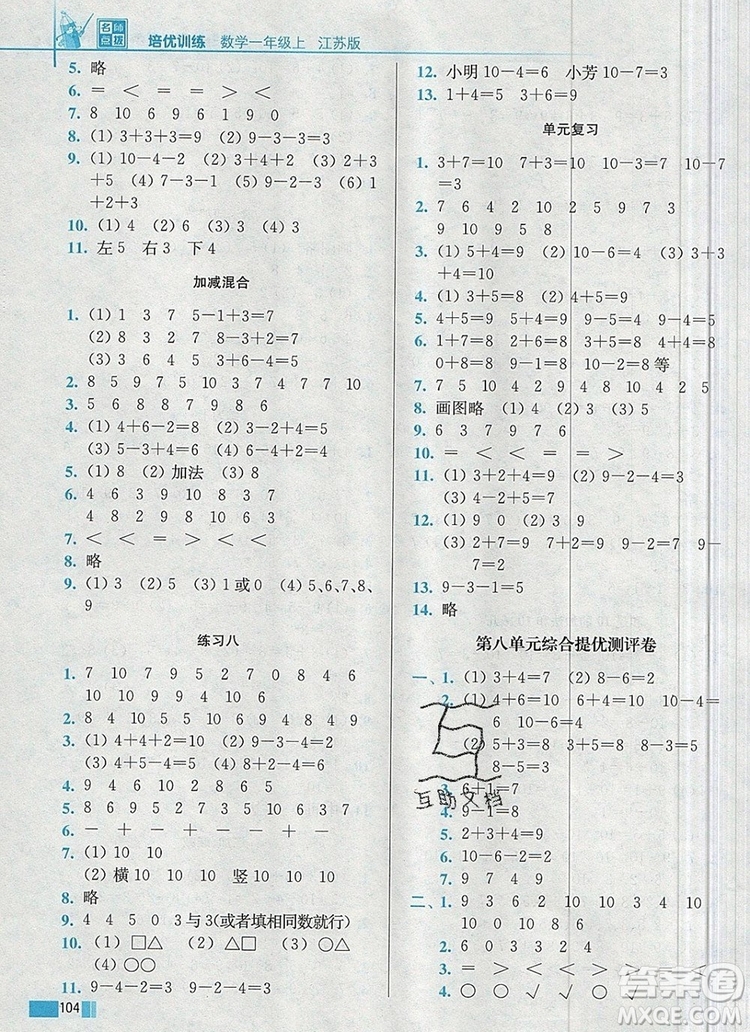 名师点拨 培优训练 数学一年级上 江苏版
5. 略
6. = < = = > <
7. 8 10 6 9 6 1 9 0
8. (1) 3+3+3=9 (2) 9-3-3=3
9. (1) 10-4-2 (2) 3+4+2 (3) 2+3
+5 (4) 7-2-3 (5) 9-2-3 (6) 1+
2+3
10. (1) 4 (2) 6 (3) 3 (4) 3
11. 左 5 右 3 下 4
加减混合
1. (1) 1 3 7 5-1+3=7
(2) 8 3 2 7 8-3+2=7
(3) 3 6 4 5 3+6-4=5
2. 8 5 9 7 5 10 3 7 4 7 7 10
3. 5 6 8 8 7 9 8 6
4. (1) 4+6-2=8 (2) 3-2+4=5
(3) 5-3+4=6 (4) 9-6+2=5
5. (1) 8 (2) 加法 (3) 8
6. 4 6 3 9 10 4 3 8
4 8 2 9 8 9 8 10
7. < < = > = <
8. 略
9. (1) 3 (2) 5 (3) 1或0 (4) 5、6、7、8、
9
练习八
1. 7 10 7 9 5 2 7 0 8 4 6
10 10 8 9
2. 8 8 4 6 0 10 9 6 4 8 4 9
3. (1) 4+4+2=10 (2) 9-4-2=3
(3) 4+5-4=5 (4) 8-4-4=0
4. 9 4 6 10 8 2 5
5. 8 9 5 6 9 5 2 7 3 5 10 6 8 7
6. - + - + - +
7. (1) 10 10
(2) 横10 10 10 竖10 10 10
8. 略
9. 4 4 5 0 3与3(或者填相同数就行)
10. (1) □△ (2) △□ (3) ○△
(4) ○○
11. 9-4-2=3 9-2-4=3
104
12. 小明 10-4=6 小芳 10-7=3
13. 1+4=5 3+6=9
单元复习
1. 3+7=10 7+3=10 10-3=7 10-7
=3
2. 7 6 4 2 10 2 5 9 7 3
9 10 9 5 8
3. (1) 5+4=9 (2) 10-6=4 (3) 6
+4=10
4. (1) 10-1=9 (2) 8-3=5
5. 5+4=9 4+5=9 9-5=4 9-4=5
6. 1+7=8 2+6=8 3+5=8 4+4=8
0+8=8 9-1=8 10-2=8等
7. 7 5 10 4 2 9 4 8 10 5 9
8. 画图略 (1) 4 (2) 5 (3) 5
9. 6 3 7 9 7 6
10. = < = < > =
11. (1) 3+2+4=9 (2) 9-4-2=3
(3) 4-2+5=7
12. (1) 9 0 (2) 3 9
(3) 2+7=9 7+2=9 9-2=7 9-
7=2
13. 9-3-1=5
14. 略
第八单元综合提优测评卷
一、1. (1) 3+4=7 (2) 8-6=2
2. (1) 4+6=10 6+4=10 10-4=
6 10-6=4
(2) 5+3=8 3+5=8 8-3=5
8-5=3
3. 6+1=7
4. 9-1=8
5. 2+3+4=9
6. 10-6-2=2
7. 9 7 4 9 4
二、1. 9 3 6 2 10 10 9 10 4
10
2. 6 0 3 3 2 4
3. = > < > < = < >
4. ○ ○ √ √ ○ √
互助文档
答案圈
MXQE.COM